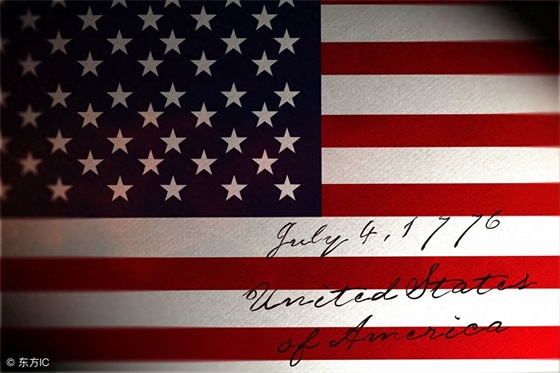 July 4, 1776
United States
of America
© 东方IC